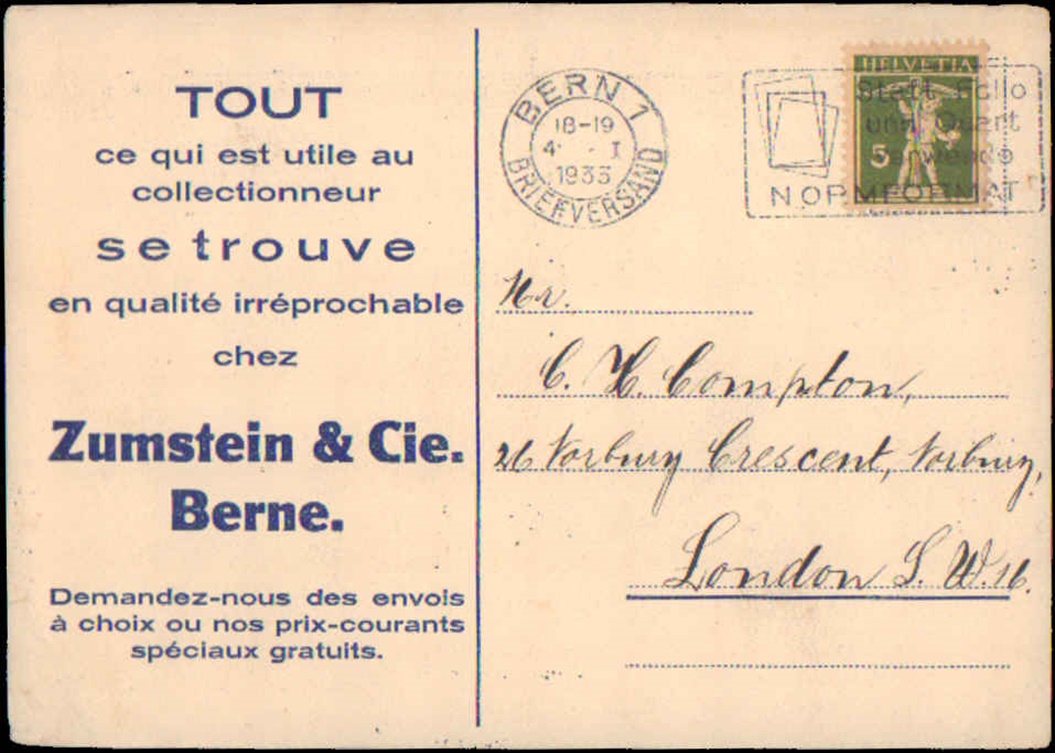 TOUT
ce qui est utile au
collectionneur
se trouve
en qualité irréprochable
chez
Zumstein & Cie.
Berne.
Demandez-nous des envois
à choix ou nos prix-courants
spéciaux gratuits.
BERN 1
18-19
BRIEFVERSAND
HELVETIA
5
Statt Folio
und Quart
NORMFORMAT
Hr.
C. H. Compton,
26 Norbury Crescent, Norbury,
London S. W. 16.